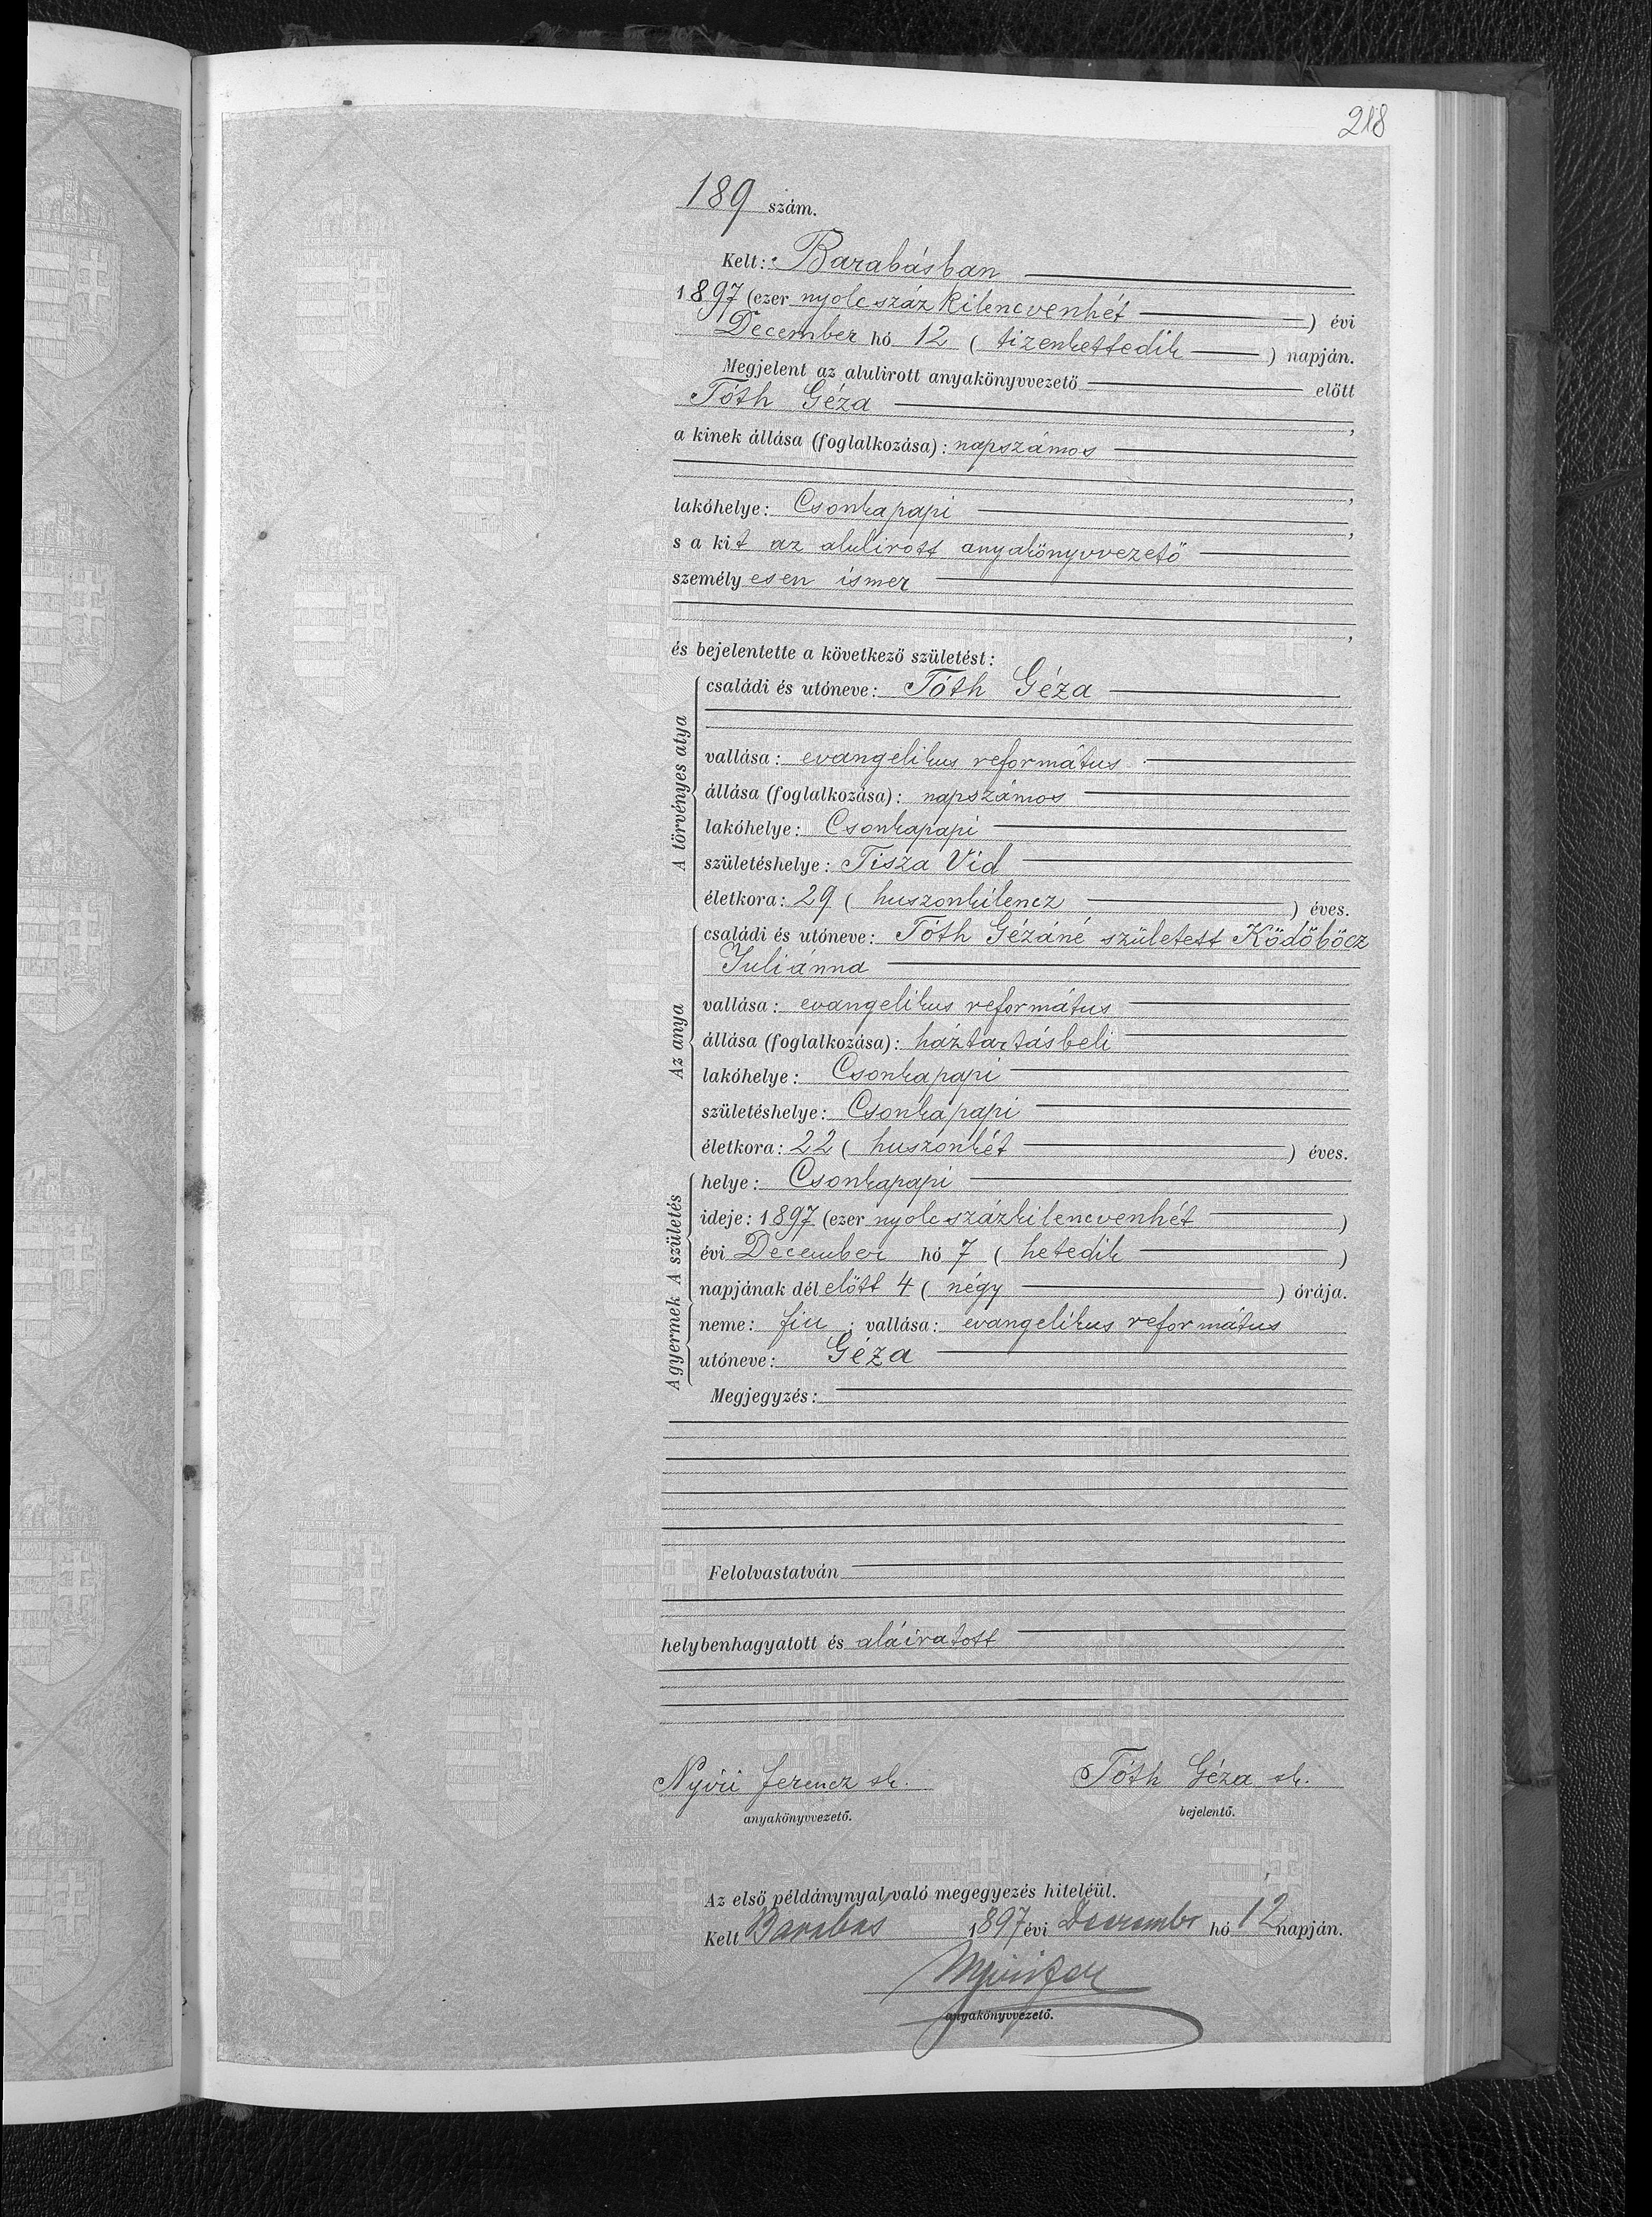 218
189 szám.
Kelt: Barabásban
1897 (ezer nyolcszáz kilencvenhét ) évi
December hó 12 ( tizenkettedik ) napján.
Megjelent az alulirott anyakönyvvezető előtt
Tóth Géza ,
a kinek állása (foglalkozása): napszámos
,
lakóhelye: Csonkapapi ,
s a kit az alulirott anyakönyvvezető
személyesen ismer
,
és bejelentette a következő születést:
A törvényes atya
családi és utóneve: Tóth Géza
vallása: evangelikus református
állása (foglalkozása): napszámos
lakóhelye: Csonkapapi
születéshelye: Tisza Vid
életkora: 29 ( huszonkilencz ) éves.
Az anya
családi és utóneve: Tóth Gézáné született Ködöböcz
Juliánna
vallása: evangelikus református
állása (foglalkozása): háztartásbeli
lakóhelye: Csonkapapi
születéshelye: Csonkapapi
életkora: 22 ( huszonkét ) éves.
A születés
helye: Csonkapapi
ideje: 1897 (ezer nyolcszázkilencvenhét )
évi December hó 7 ( hetedik )
napjának délelőtt 4 ( négy ) órája.
A gyermek
neme: fiu ; vallása: evangelikus református
utóneve: Géza
Megjegyzés:
Felolvastatván
helybenhagyatott és aláiratott
Nyíri Ferencz sk. Tóth Géza sk.
anyakönyvvezető. bejelentő.
Az első példánynyal való megegyezés hiteléül.
Kelt Barabas 1897 évi December hó 12 napján.
anyakönyvvezető.